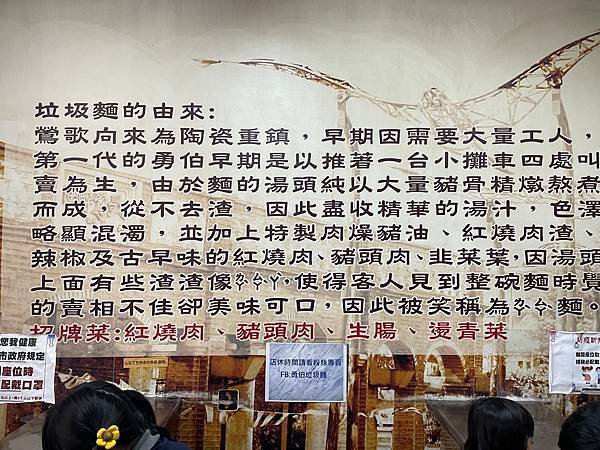 垃圾麵的由來:
鶯歌向來為陶瓷重鎮，早期因需要大量工人，
第一代的勇伯早期是以推著一台小攤車四處叫
賣為生，由於麵的湯頭純以大量豬骨精燉熬煮
而成，從不去渣，因此盡收精華的湯汁，色澤
略顯混濁，並加上特製肉燥豬油、紅燒肉渣、
辣椒及古早味的紅燒肉、豬頭肉、韭菜葉，因湯頭
上面有些渣渣像ㄆㄣㄚˊ，使得客人見到整碗麵時覺
的賣相不佳卻美味可口，因此被笑稱為ㄆㄣ ㄚˊ麵。
招牌菜:紅燒肉、豬頭肉、生腸、燙青菜
您我健康
市政府規定
座位時
配戴口罩
店休時間請看粉絲專頁
FB:勇伯垃圾麵